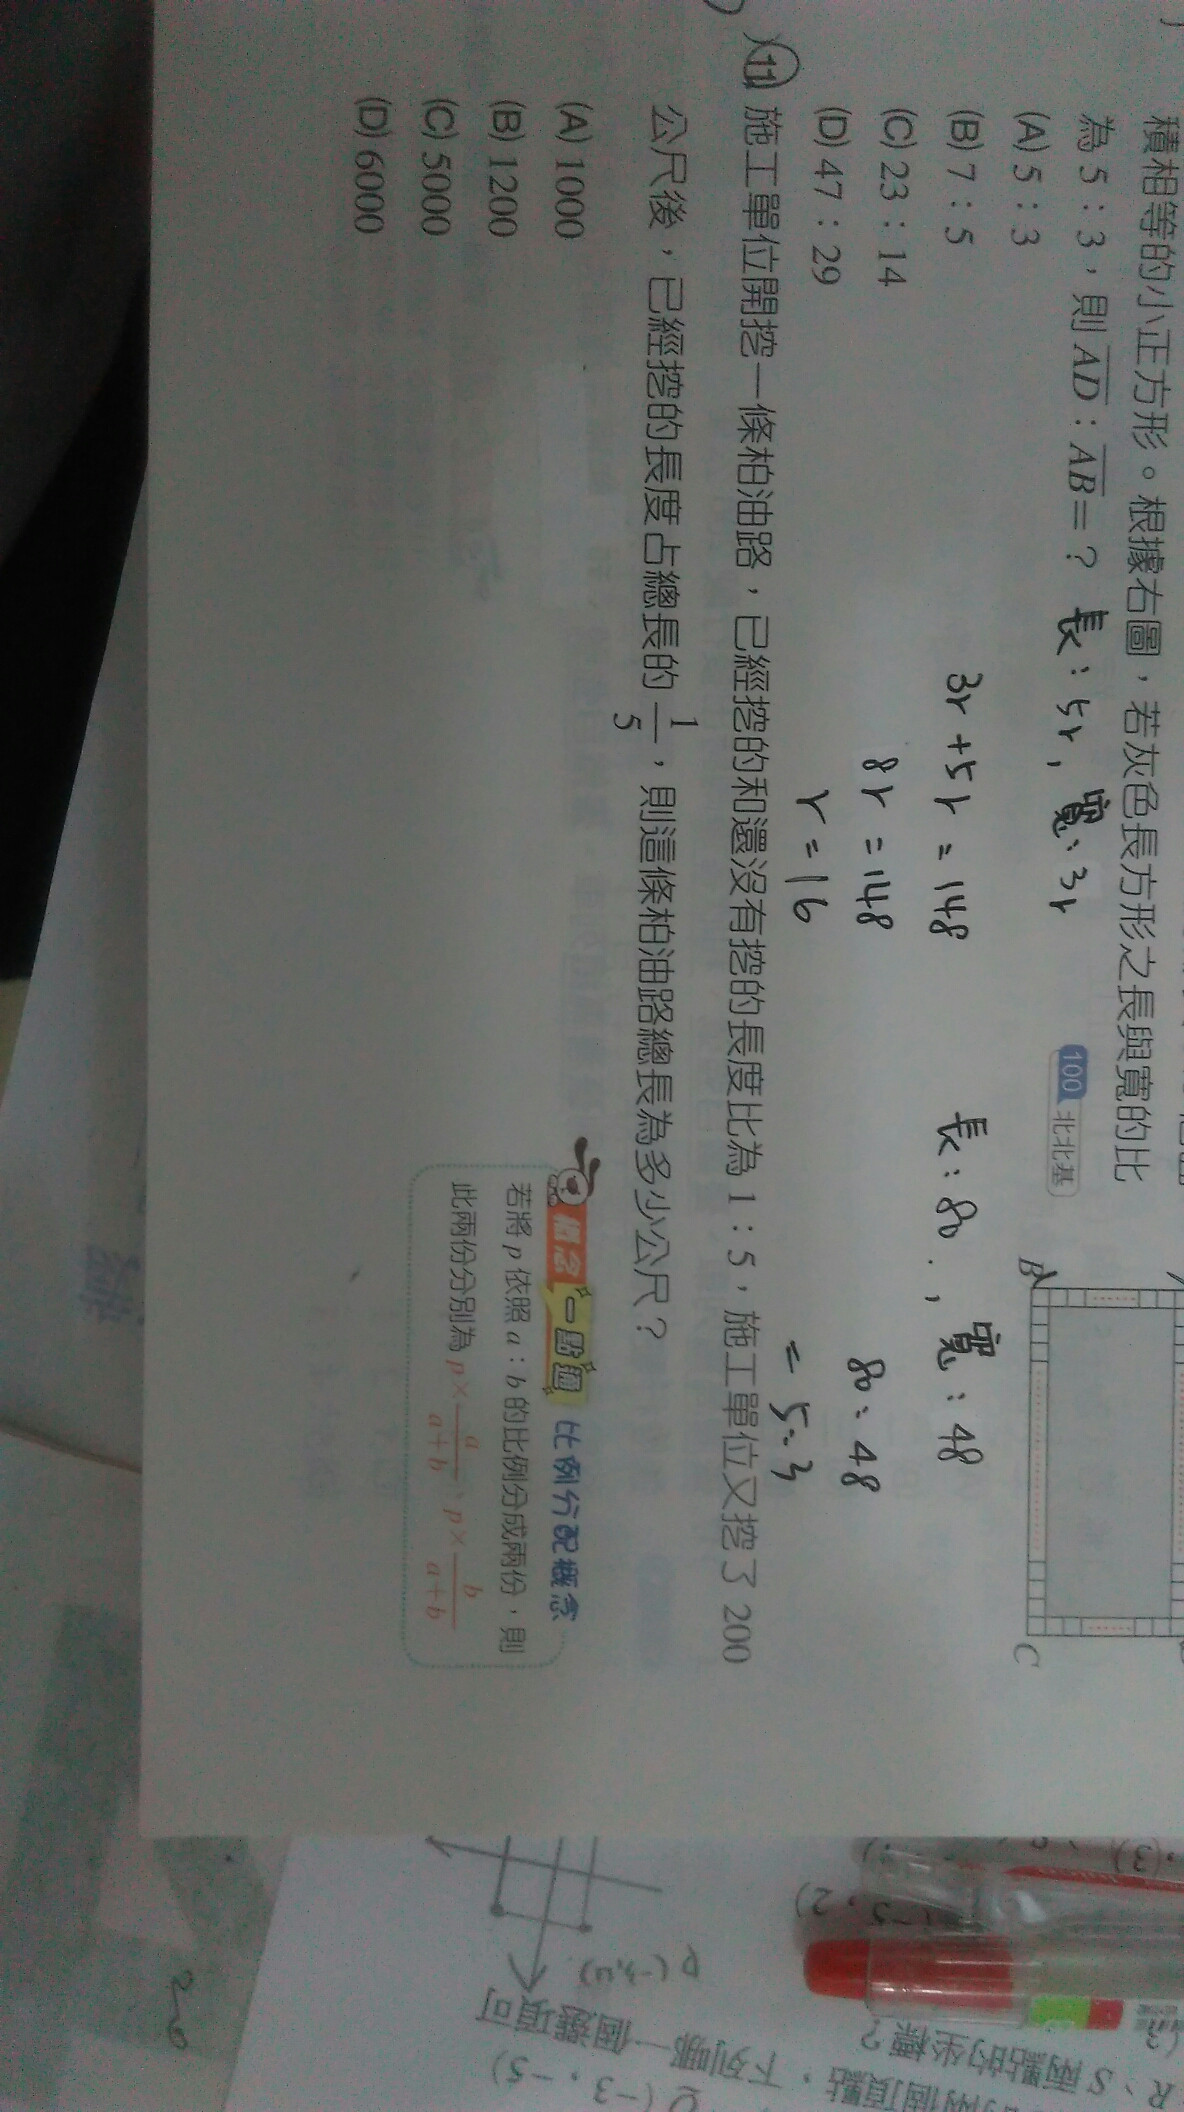 積相等的小正方形。根據右圖，若灰色長方形之長與寬的比
為 5：3，則 AD：AB＝？ 長：5r，寬：3r
100 北北基
(A) 5：3
(B) 7：5
(C) 23：14
(D) 47：29
3r+5r=148
8r=148
r=16
長：80，寬：48
80：48
=5：3
B
C
11 施工單位開挖一條柏油路，已經挖的和還沒有挖的長度比為 1：5，施工單位又挖了 200
公尺後，已經挖的長度占總長的 1/5，則這條柏油路總長為多少公尺？
(A) 1000
(B) 1200
(C) 5000
(D) 6000
概念一點通 比例分配概念
若將 p 依照 a：b 的比例分成兩份，則
此兩份分別為 p× a/a+b、p× b/a+b
R、S 兩點的坐標？
兩個頂點，下列哪一個選項可
Q(-3，-5)